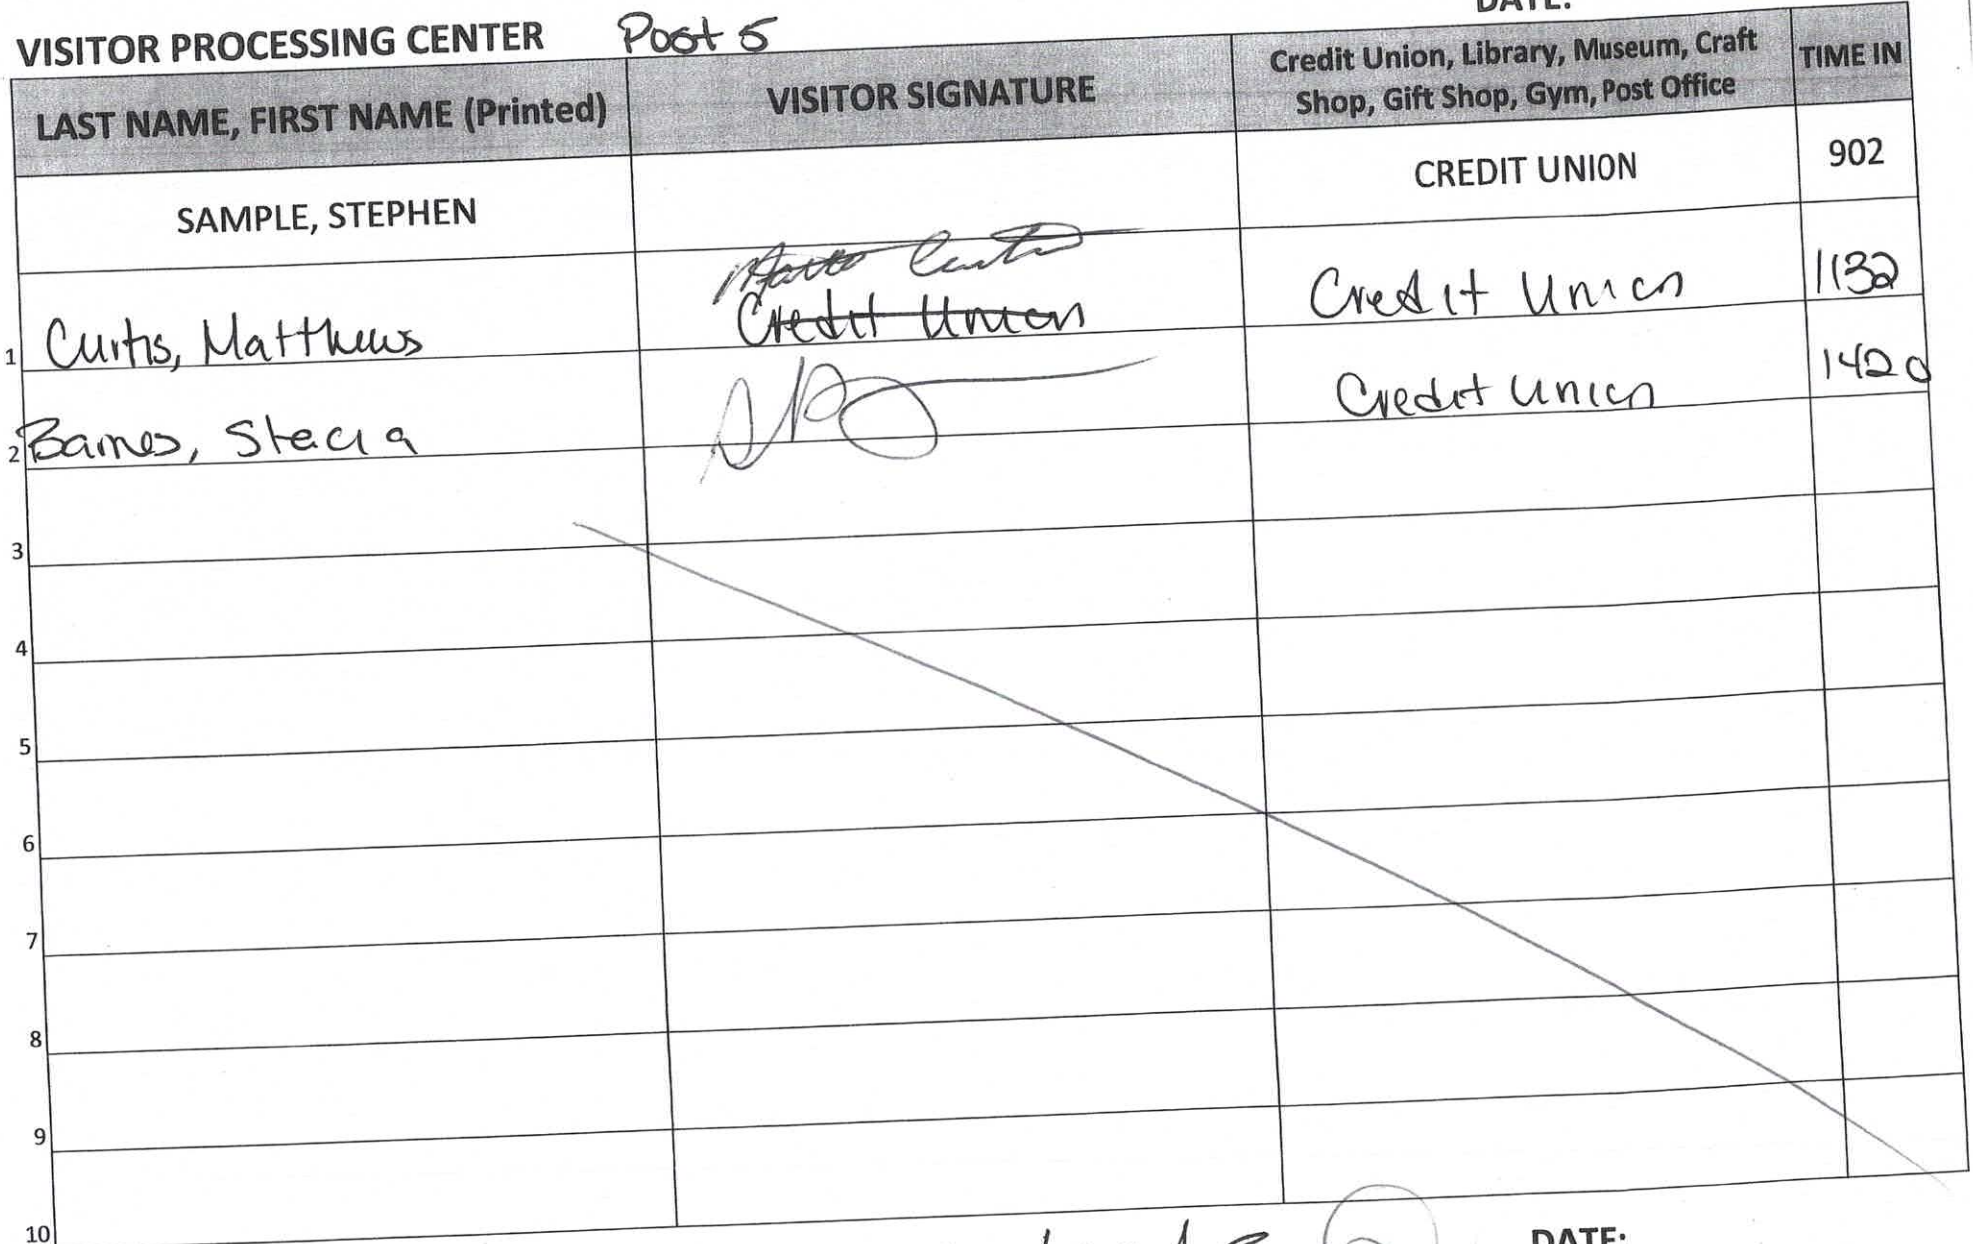 DATE:
VISITOR PROCESSING CENTER Post 5
LAST NAME, FIRST NAME (Printed) VISITOR SIGNATURE Credit Union, Library, Museum, Craft Shop, Gift Shop, Gym, Post Office TIME IN
SAMPLE, STEPHEN CREDIT UNION 902
1 Curtis, Matthews Credit Union Credit Union 1132
2 Barnes, Stacia Credit Union 1420
3
4
5
6
7
8
9
10
DATE: